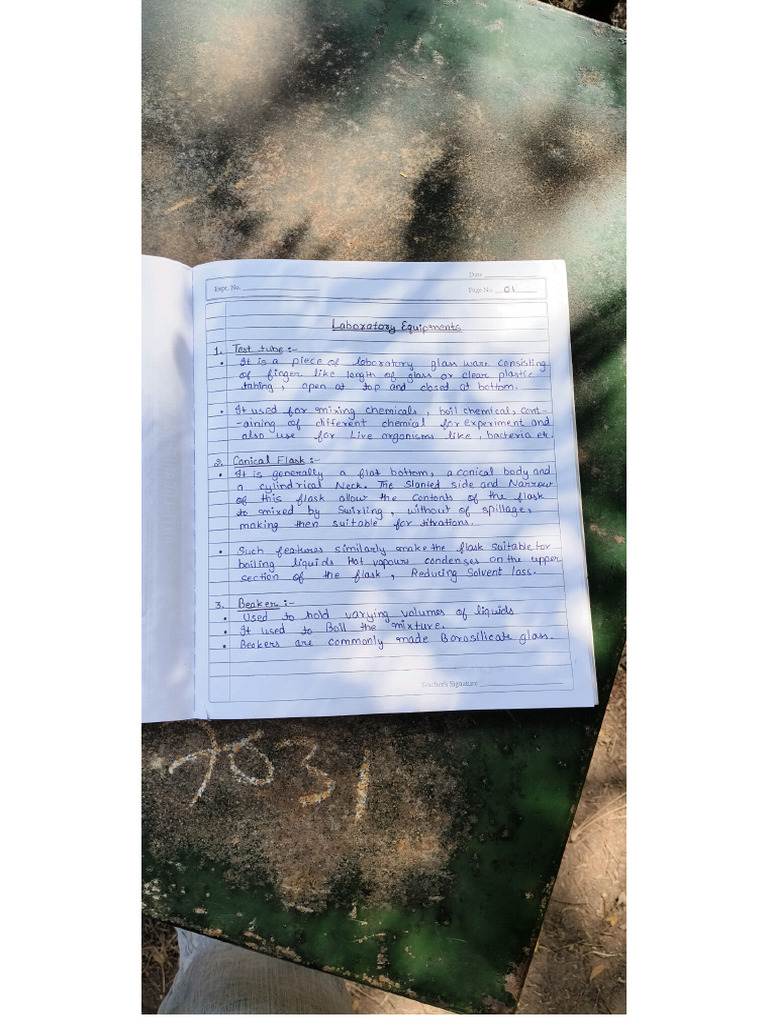 Date
Expt. No.
Page No. 01
Laboratory Equipments
1. Test tube :-
• It is a piece of laboratory glass ware consisting
of finger like length of glass or clear plastic
tubing, open at top and closed at bottom.
• It used for mixing chemicals, boil chemical, cont-
-aining of different chemical for experiment and
also use for Live organisms like, bacteria etc.
2. Conical Flask :-
• It is generally a flat bottom, a conical body and
a cylindrical Neck. The Slanted side and Narrow
of this flask allow the contents of the flask
to mixed by Swirling, without of spillage,
making then suitable for titrations.
• Such features similarly make the flask suitable for
boiling liquids Hot vapours condenses on the upper
section of the flask, Reducing Solvent loss.
3. Beaker :-
• Used to hold varying volumes of liquids
• It used to Boil the mixture.
• Beakers are commonly made Borosilicate glass.
Teacher's Signature
7031